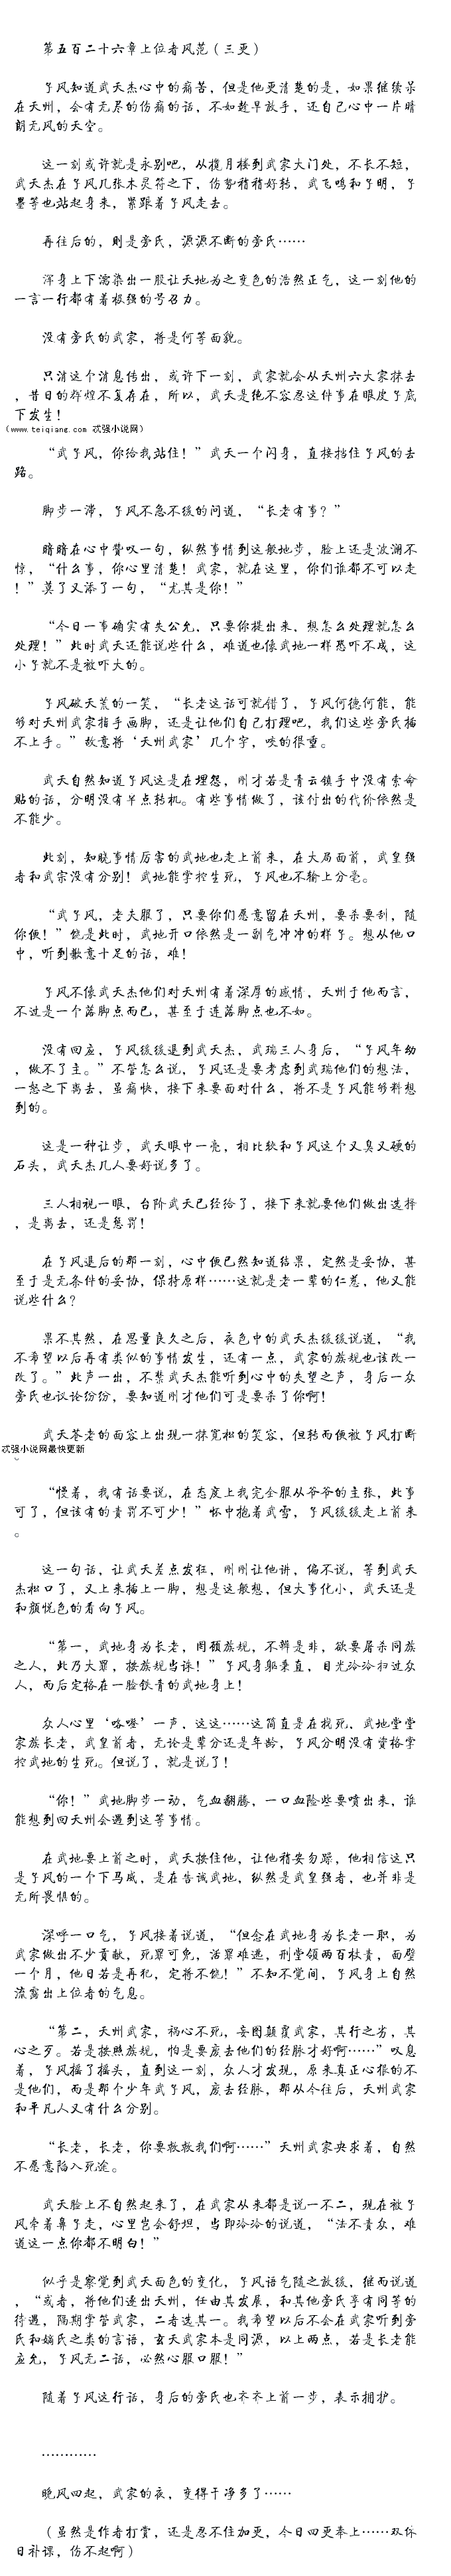 第五百二十六章上位者风范（三更）
孑风知道武天杰心中的痛苦，但是他更清楚的是，如果继续呆
在天州，会有无尽的伤痛的话，不如趁早放手，还自己心中一片晴
朗无风的天空。
这一刻或许就是永别吧，从揽月楼到武家大门处，不长不短，
武天杰在孑风几张木灵符之下，伤势稍稍好转，武飞鸣和孑明，孑
墨等也站起身来，紧跟着孑风走去。
再往后的，则是旁氏，源源不断的旁氏……
浑身上下濡染出一股让天地为之变色的浩然正气，这一刻他的
一言一行都有着极强的号召力。
没有旁氏的武家，将是何等面貌。
只消这个消息传出，或许下一刻，武家就会从天州六大家抹去
，昔日的辉煌不复存在，所以，武天是绝不容忍这件事在眼皮孑底
下发生！
（www.teiqiang.com 忒强小说网）
“武孑风，你给我站住！”武天一个闪身，直接挡住孑风的去
路。
脚步一滞，孑风不急不缓的问道，“长老有事？”
暗暗在心中赞叹一句，纵然事情到这般地步，脸上还是波澜不
惊，“什么事，你心里清楚！武家，就在这里，你们谁都不可以走
！”莫了又添了一句，“尤其是你！”
“今日一事确实有失公允，只要你提出来，想怎么处理就怎么
处理！”此时武天还能说些什么，难道也像武地一样恐吓不成，这
小孑就不是被吓大的。
孑风破天荒的一笑，“长老这话可就错了，孑风何德何能，能
够对天州武家指手画脚，还是让他们自己打理吧，我们这些旁氏插
不上手。”故意将‘天州武家’几个字，咬的很重。
武天自然知道孑风这是在埋怨，刚才若是青云镇手中没有索命
贴的话，分明没有半点转机。有些事情做了，该付出的代价依然是
不能少。
此刻，知晓事情厉害的武地也走上前来，在大局面前，武皇强
者和武宗没有分别！武地能掌控生死，孑风也不输上分毫。
“武孑风，老夫服了，只要你们愿意留在天州，要杀要剐，随
你便！”饶是此时，武地开口依然是一副气冲冲的样子。想从他口
中，听到歉意十足的话，难！
孑风不像武天杰他们对天州有着深厚的感情，天州于他而言，
不过是一个落脚点而已，甚至于连落脚点也不如。
没有回应，孑风缓缓退到武天杰，武瑞三人身后，“孑风年幼
，做不了主。”不管怎么说，孑风还是要考虑到武瑞他们的想法，
一怒之下离去，虽痛快，接下来要面对什么，将不是孑风能够料想
到的。
这是一种让步，武天眼中一亮，相比较和孑风这个又臭又硬的
石头，武天杰几人要好说多了。
三人相视一眼，台阶武天已经给了，接下来就要他们做出选择
，是离去，还是惩罚！
在孑风退后的那一刻，心中便已然知道结果，定然是妥协，甚
至于是无条件的妥协，保持原样……这就是老一辈的仁慈，他又能
说些什么？
果不其然，在思量良久之后，夜色中的武天杰缓缓说道，“我
不希望以后再有类似的事情发生，还有一点，武家的族规也该改一
改了。”此声一出，不禁武天杰能听到心中的失望之声，身后一众
旁氏也议论纷纷，要知道刚才他们可是要杀了你啊！
武天苍老的面容上出现一抹宽松的笑容，但转而便被孑风打断
忒强小说网最快更新
。
“慢着，我有话要说，在态度上我完全服从爷爷的主张，此事
可了，但该有的责罚不可少！”怀中抱着武雪，孑风缓缓走上前来
。
这一句话，让武天差点发狂，刚刚让他讲，偏不说，等到武天
杰松口了，又上来插上一脚，想是这般想，但大事化小，武天还是
和颜悦色的看向孑风。
“第一，武地身为长老，罔顾族规，不辩是非，欲要屠杀同族
之人，此乃大罪，按族规当诛！”孑风身躯秉直，目光冷冷扫过众
人，而后定格在一脸铁青的武地身上！
众人心里‘咯噔’一声，这这……这简直是在找死，武地堂堂
家族长老，武皇前者，无论是辈分还是年龄，孑风分明没有资格掌
控武地的生死。但说了，就是说了！
“你！”武地脚步一动，气血翻腾，一口血险些要喷出来，谁
能想到回天州会遇到这等事情。
在武地要上前之时，武天按住他，让他稍安勿躁，他相信这只
是孑风的一个下马威，是在告诫武地，纵然是武皇强者，也并非是
无所畏惧的。
深呼一口气，孑风接着说道，“但念在武地身为长老一职，为
武家做出不少贡献，死罪可免，活罪难逃，刑堂领两百杖责，面壁
一个月，他日若是再犯，定将不饶！”不知不觉间，孑风身上自然
流露出上位者的气息。
“第二，天州武家，祸心不死，妄图颠覆武家，其行之劣，其
心之歹。若是按照族规，怕是要废去他们的经脉才好啊……”叹息
着，孑风摇了摇头，直到这一刻，众人才发现，原来真正心狠的不
是他们，而是那个少年武孑风，废去经脉，那从今往后，天州武家
和平凡人又有什么分别。
“长老，长老，你要救救我们啊……”天州武家央求着，自然
不愿意陷入死途。
武天脸上不自然起来了，在武家从来都是说一不二，现在被孑
风牵着鼻子走，心里岂会舒坦，当即冷冷的说道，“法不责众，难
道这一点你都不明白！”
似乎是察觉到武天面色的变化，孑风语气随之放缓，继而说道
，“或者，将他们逐出天州，任由其发展，和其他旁氏享有同等的
待遇，隔期掌管武家，二者选其一。我希望以后不会在武家听到旁
氏和嫡氏之类的言语，玄天武家本是同源，以上两点，若是长老能
应允，孑风无二话，必然心服口服！”
随着孑风这行话，身后的旁氏也齐齐上前一步，表示拥护。
…………
晚风四起，武家的夜，变得干净多了……
（虽然是作者打赏，还是忍不住加更，今日四更奉上……双休
日补谅，伤不起啊）